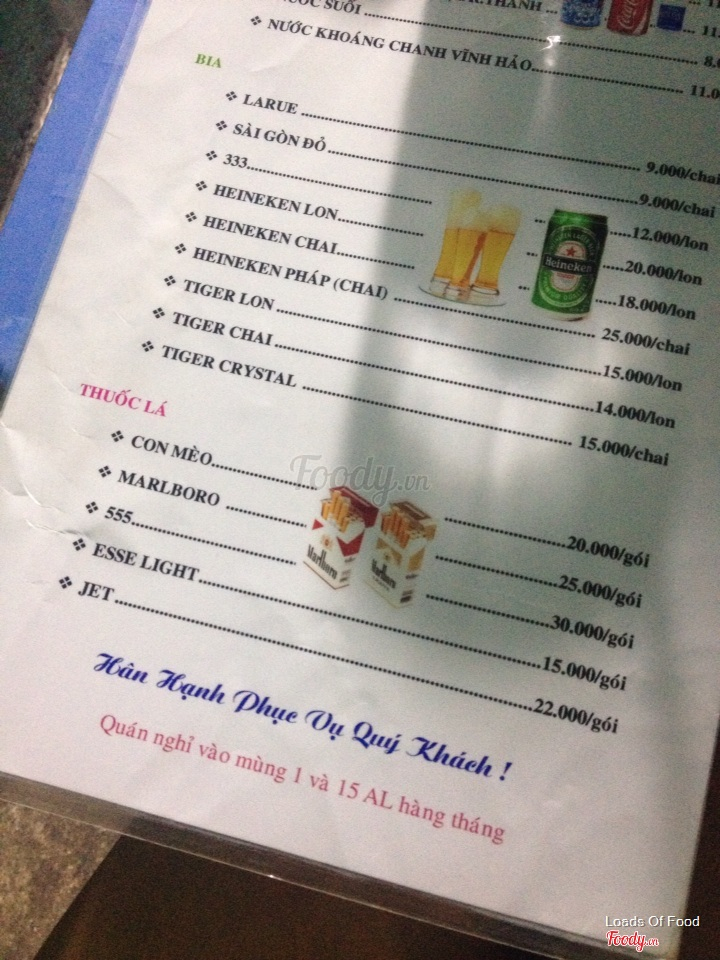 SUỐI
NƯỚC KHOÁNG CHANH VĨNH HẢO 11.0
BIA
LARUE 9.000/chai
SÀI GÒN ĐỎ 9.000/chai
333 12.000/lon
HEINEKEN LON 20.000/lon
HEINEKEN CHAI 18.000/lon
HEINEKEN PHÁP (CHAI) 25.000/chai
TIGER LON 15.000/lon
TIGER CHAI 14.000/lon
TIGER CRYSTAL 15.000/chai
Heineken
THUỐC LÁ
CON MÈO 20.000/gói
MARLBORO 25.000/gói
555 30.000/gói
ESSE LIGHT 15.000/gói
JET 22.000/gói
Marlboro
Marlboro
Foody.vn
Hân Hạnh Phục Vụ Quý Khách !
Quán nghỉ vào mùng 1 và 15 AL hàng tháng
Loads Of Food
Foody.vn